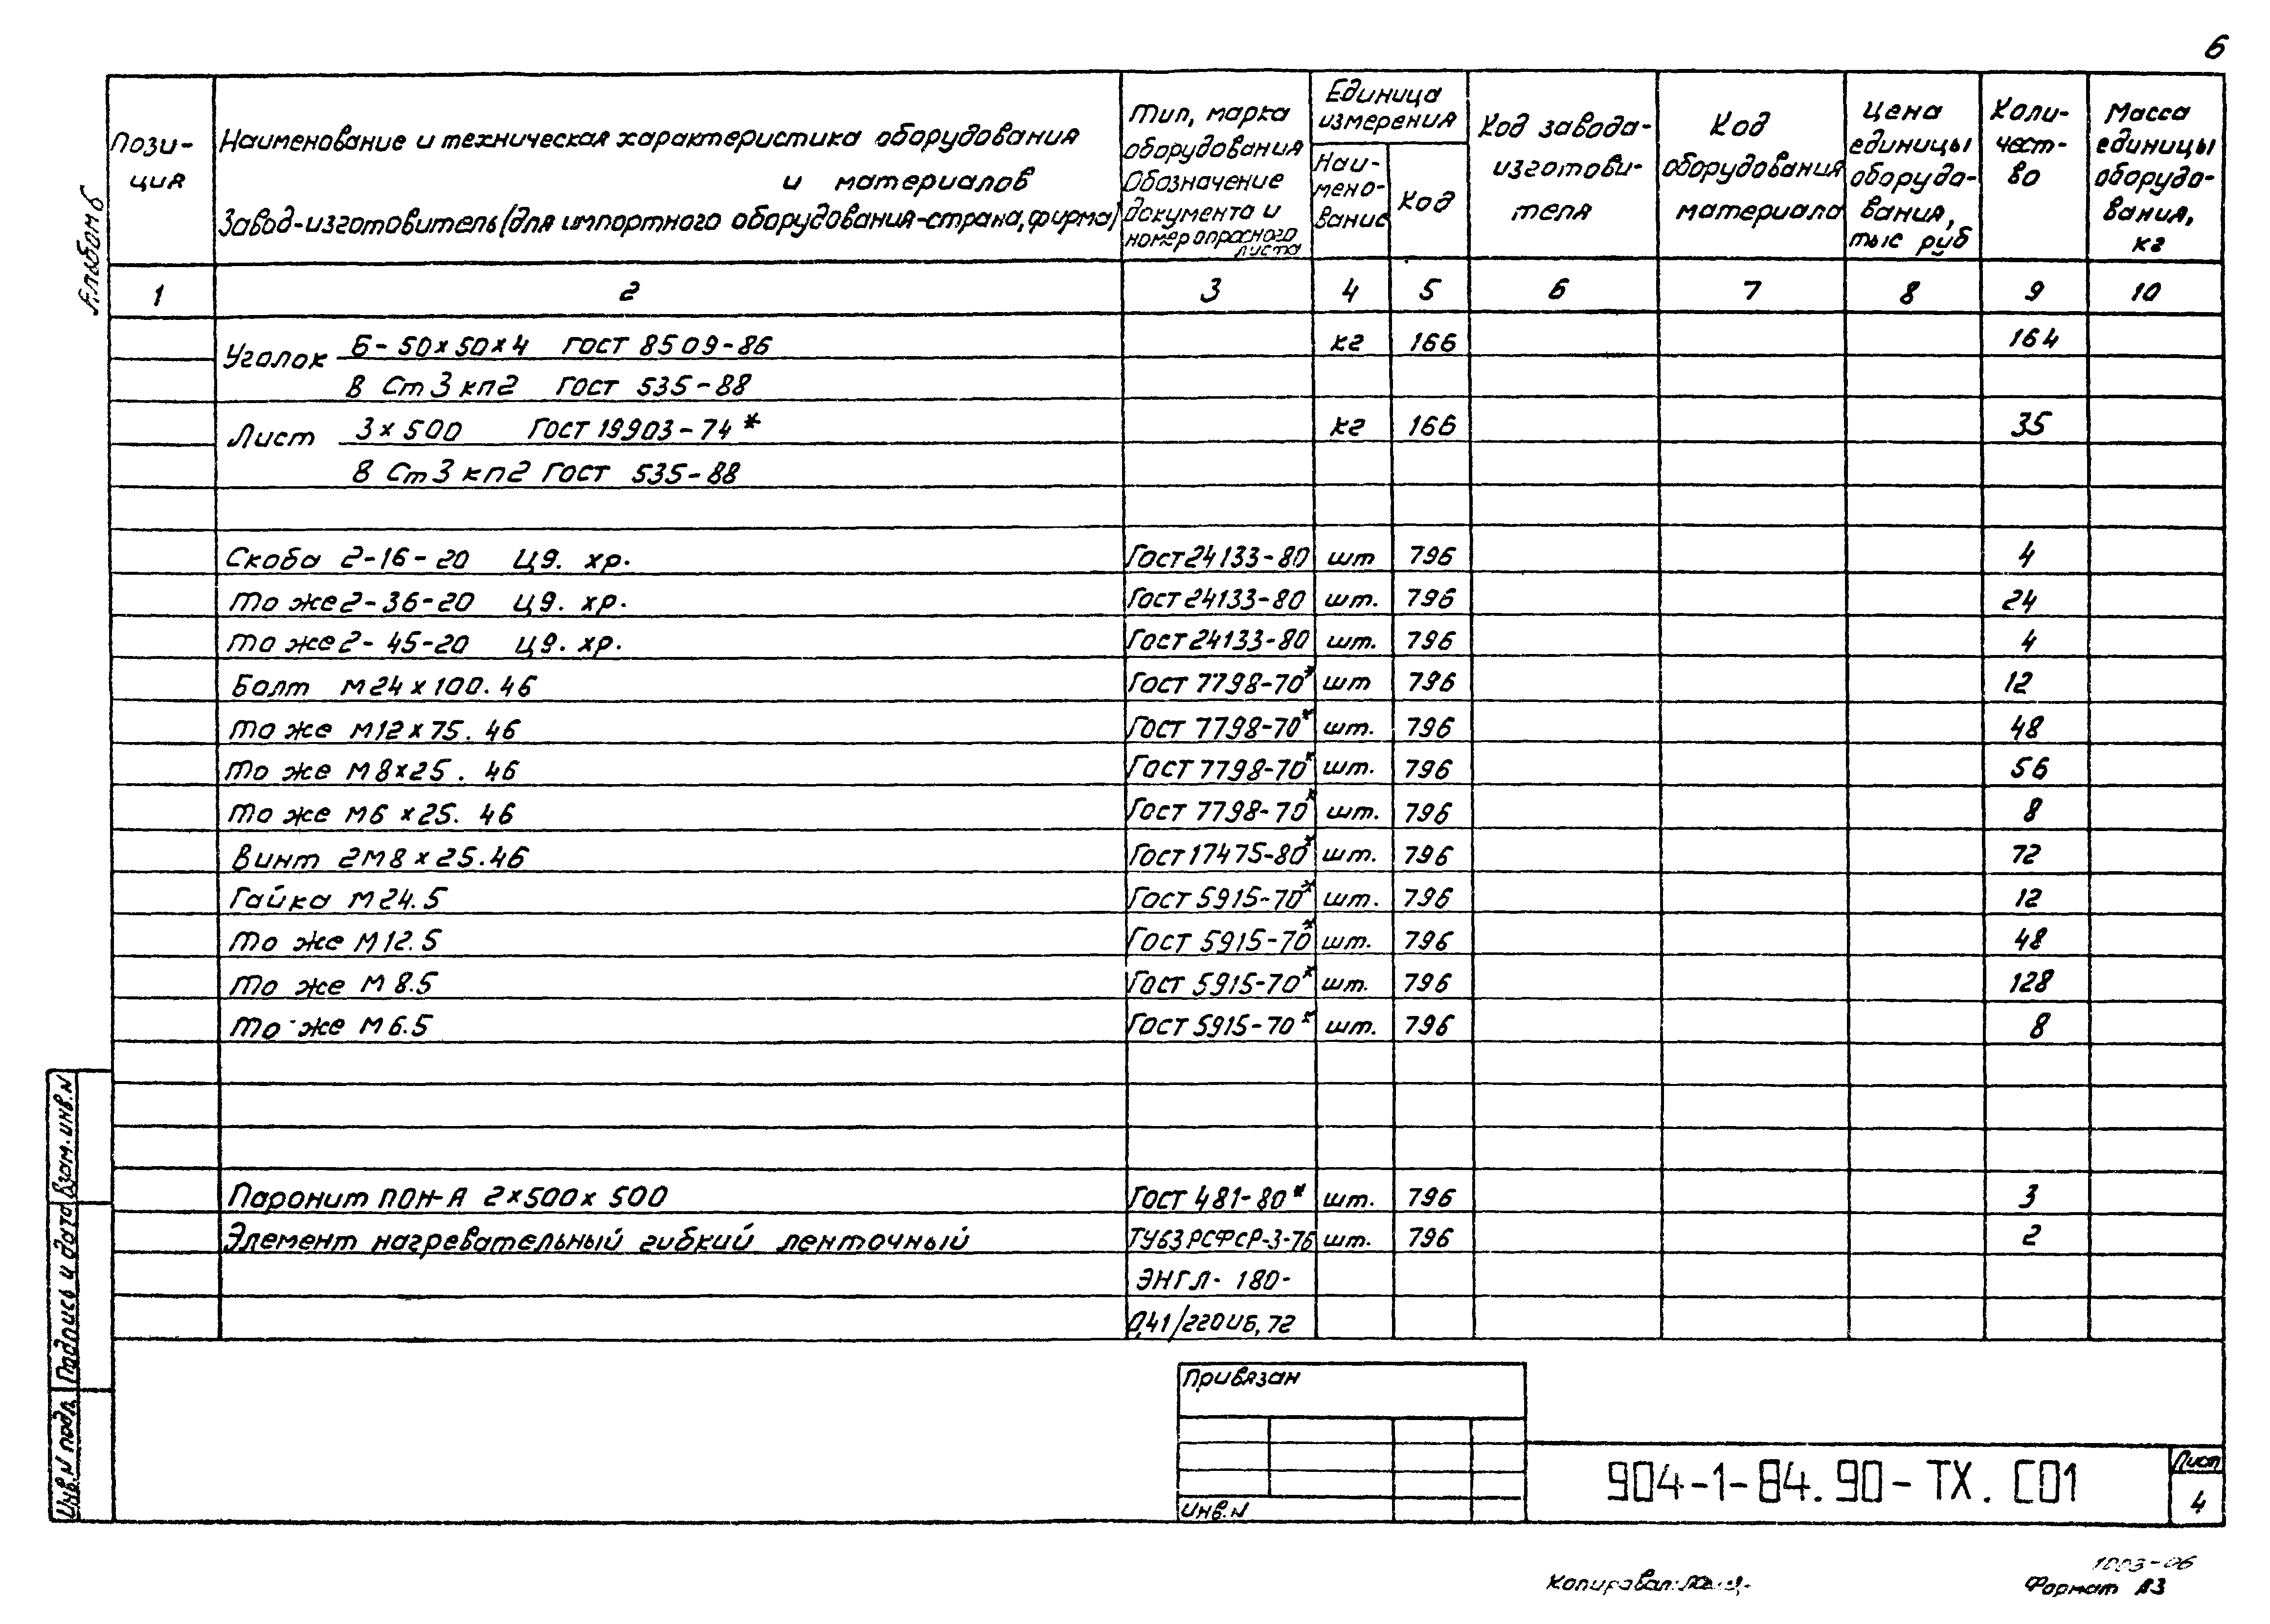 6
Альбом 6
Пози-
ция
Наименование и техническая характеристика оборудования
и материалов
Завод-изготовитель (для импортного оборудования-страна, фирма)
Тип, марка
оборудования
Обозначение
документа и
номер опросного
листа
Единица
измерения
Наи-
мено-
вание
Код
Код завода-
изготови-
теля
Код
оборудования
материала
Цена
единицы
оборудо-
вания,
тыс руб
Коли-
чест-
во
Масса
единицы
оборудо-
вания,
кг
1 2 3 4 5 6 7 8 9 10
Уголок Б-50х50х4 ГОСТ 8509-86 кг 166 164
В Ст3кп2 ГОСТ 535-88
Лист 3х500 ГОСТ 19903-74* кг 166 35
В Ст3кп2 ГОСТ 535-88
Скоба 2-16-20 Ц9. хр. ГОСТ 24133-80 шт 796 4
То же 2-36-20 Ц9. хр. ГОСТ 24133-80 шт. 796 24
То же 2-45-20 Ц9. хр. ГОСТ 24133-80 шт. 796 4
Болт М24х100.46 ГОСТ 7798-70* шт 796 12
То же М12х75.46 ГОСТ 7798-70* шт. 796 48
То же М8х25.46 ГОСТ 7798-70* шт. 796 56
То же М6х25.46 ГОСТ 7798-70* шт. 796 8
Винт 2М8х25.46 ГОСТ 17475-80* шт. 796 72
Гайка М24.5 ГОСТ 5915-70* шт. 796 12
То же М12.5 ГОСТ 5915-70* шт. 796 48
То же М8.5 ГОСТ 5915-70* шт. 796 128
То же М6.5 ГОСТ 5915-70* шт. 796 8
Паронит ПОН-А 2х500х500 ГОСТ 481-80* шт. 796 3
Элемент нагревательный гибкий ленточный ТУ63РСФСР-3-76 шт. 796 2
ЭНГЛ-180-
0,41/220 Иб,72
Взам.инв.N
Подпись и дата
Инв.N подл.
Привязан
Инв.N
904-1-84.90-ТХ.СО1
Лист
4
Копировал
Формат А3